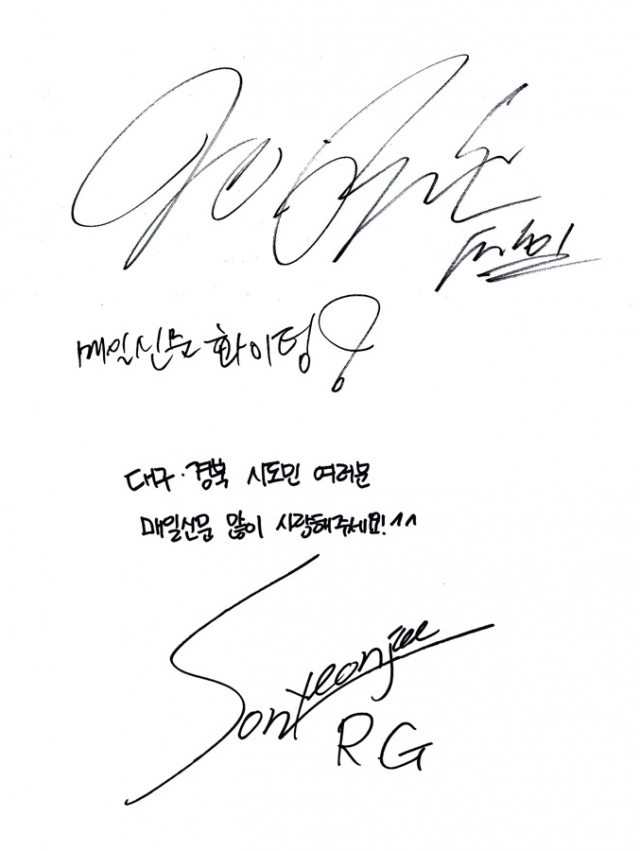 매일신문 화이팅!
대구·경북 시도민 여러분
매일신문 많이 사랑해주세요!^^
Son Yeonjae
RG